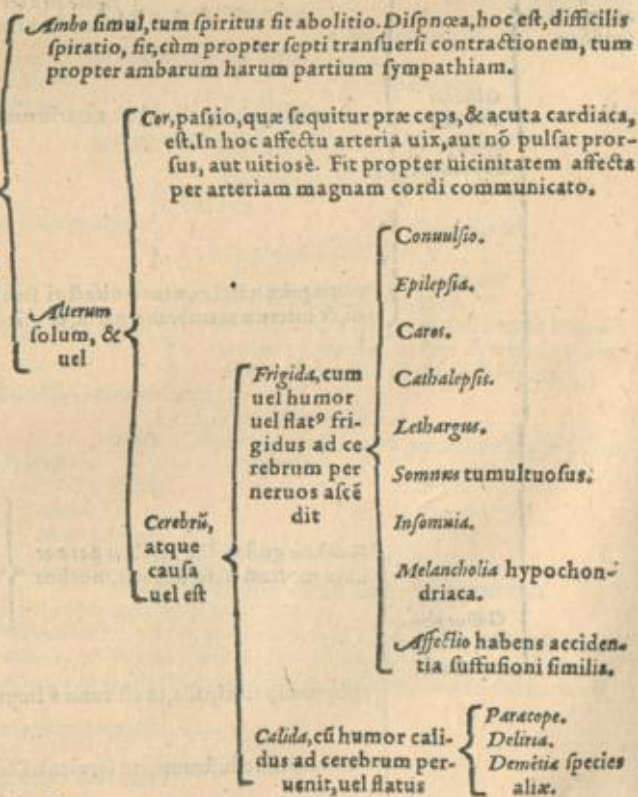 Ambo ſimul, tum ſpiritus fit abolitio. Diſpnœa, hoc eſt, difficilis
ſpiratio, fit, cùm propter ſepti tranſuerſi contractionem, tum
propter ambarum harum partium ſympathiam.
Cor, paſsio, quæ ſequitur præceps, & acuta cardiaca,
eſt. In hoc affectu arteria uix, aut nõ pulſat pror-
ſus, aut uitioſè. Fit propter uicinitatem affecta
per arteriam magnam cordi communicato.
Alterum
ſolum, &
uel
Cerebrũ,
atque
cauſa
uel eſt
Frigida, cum
uel humor
uel flatꝰ fri-
gidus ad ce
rebrum per
neruos aſcẽ
dit
Conuulſio.
Epilepſia.
Caros.
Cathalepſis.
Lethargus.
Somnus tumultuoſus.
Inſomnia.
Melancholia hypochon-
driaca.
Affectio habens acciden-
tia ſuffuſioni ſimilis.
Calida, cũ humor cali-
dus ad cerebrum per-
uenit, uel flatus
Paracope.
Deliria.
Demẽtiæ ſpecies
aliæ.